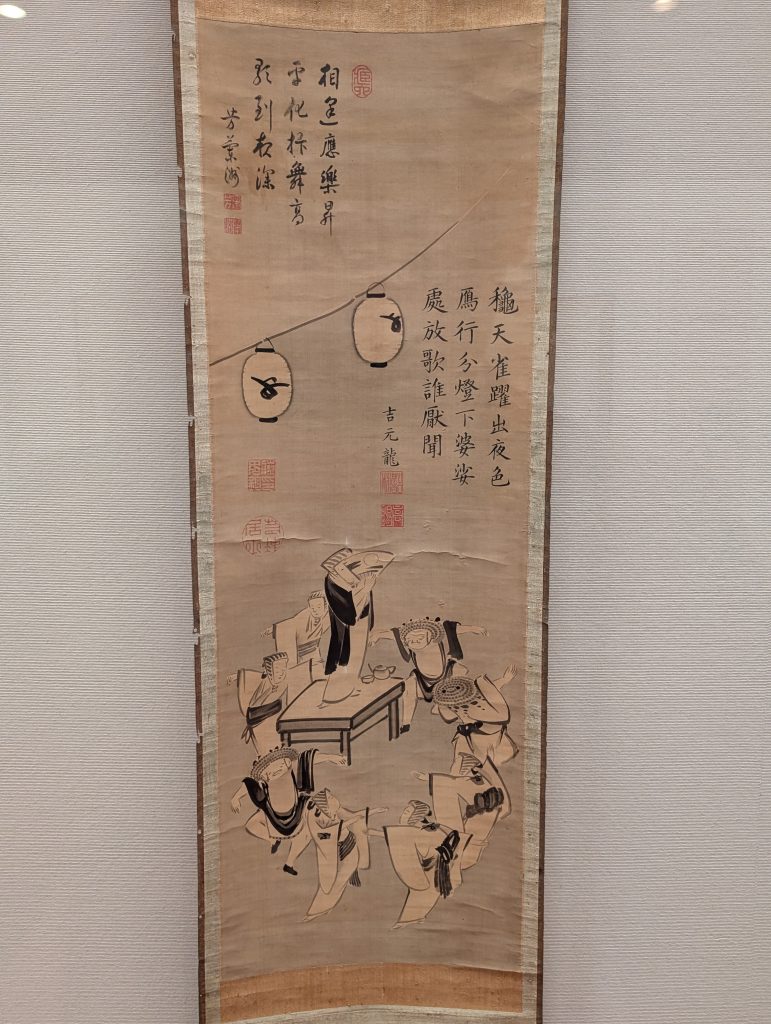 相逢應樂昇
平化抃舞高
歌到夜深
穐天雀躍出夜色
鴈行分燈下婆娑
處放歌誰厭聞
吉元龍